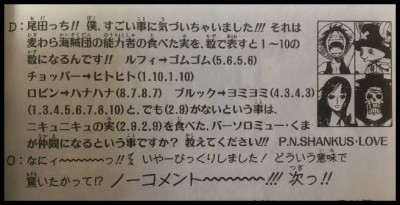 D：尾田っち!! 僕、すごい事に気づいちゃいました!!! それは
麦わら海賊団の能力者の食べた実を、数で表すと1～10の
数になるんです!! ルフィ➡ゴムゴム(5.6.5.6)
チョッパー➡ヒトヒト(1.10.1.10)
ロビン➡ハナハナ(8.7.8.7) ブルック➡ヨミヨミ(4.3.4.3)
(1.3.4.5.6.7.8.10)と、でも(2.9)がないという事は、
ニキュニキュの実(2.9.2.9)を食べた、バーソロミュー・くま
が仲間になるという事ですか? 教えてください!!! P.N.SHANKUS・LOVE
O：なにィ～～～～～っ!! いやーびっくりしました! どういう意味で
驚いたかって!? ノーコメント～～～～～!!! 次っ!!